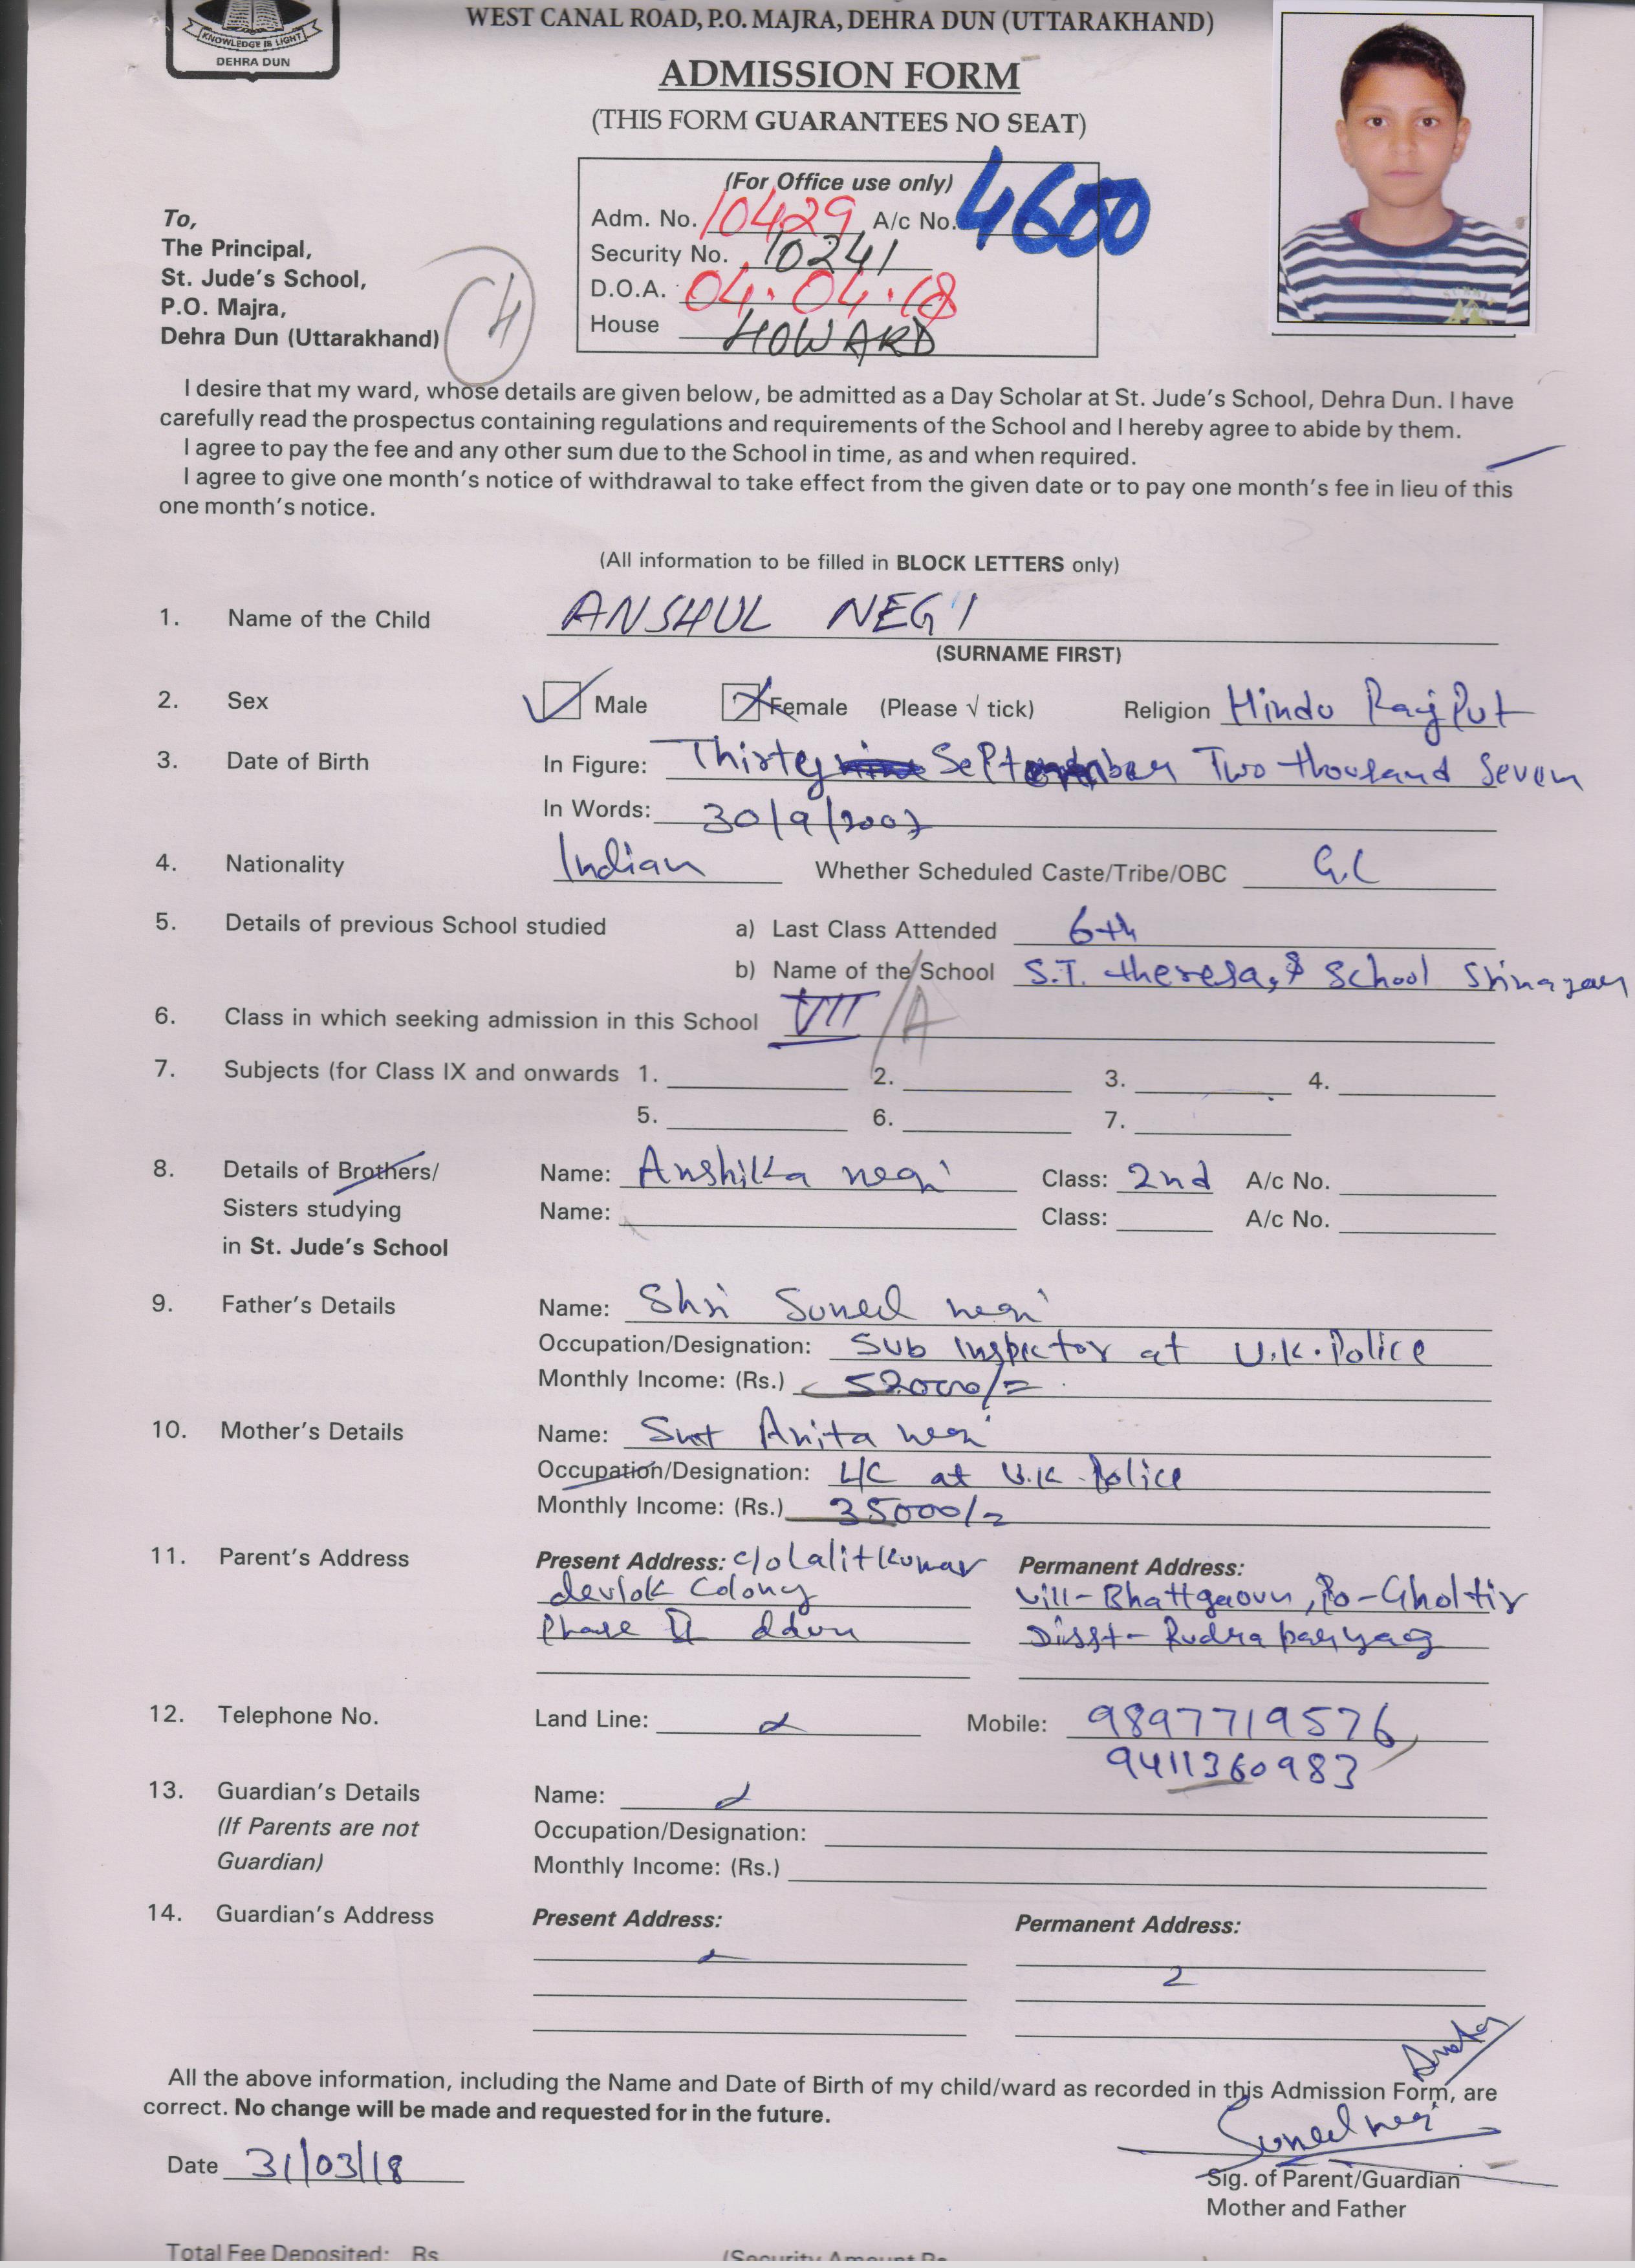 KNOWLEDGE IS LIGHT
DEHRA DUN
WEST CANAL ROAD, P.O. MAJRA, DEHRA DUN (UTTARAKHAND)
ADMISSION FORM
(THIS FORM GUARANTEES NO SEAT)
(For Office use only)
Adm. No. 10429 A/c No. 4600
Security No. 10241
D.O.A. 04.04.18
House HOWARD
To,
The Principal,
St. Jude's School,
P.O. Majra,
Dehra Dun (Uttarakhand)
4
I desire that my ward, whose details are given below, be admitted as a Day Scholar at St. Jude's School, Dehra Dun. I have
carefully read the prospectus containing regulations and requirements of the School and I hereby agree to abide by them.
I agree to pay the fee and any other sum due to the School in time, as and when required.
I agree to give one month's notice of withdrawal to take effect from the given date or to pay one month's fee in lieu of this
one month's notice.
(All information to be filled in BLOCK LETTERS only)
1. Name of the Child ANSHUL NEGI
(SURNAME FIRST)
2. Sex Male Female (Please √ tick) Religion Hindu Rajput
3. Date of Birth In Figure: Thirty September Two thousand Seven
In Words: 30/9/2007
4. Nationality Indian Whether Scheduled Caste/Tribe/OBC G.C
5. Details of previous School studied a) Last Class Attended 6th
b) Name of the School S.T. theresa,s School Srinagar
6. Class in which seeking admission in this School VII /A
7. Subjects (for Class IX and onwards 1. 2. 3. 4.
5. 6. 7.
8. Details of Brothers/ Name: Anshika negi Class: 2nd A/c No.
Sisters studying Name: Class: A/c No.
in St. Jude's School
9. Father's Details Name: Shri Suneel negi
Occupation/Designation: Sub Inspector at U.K. Police
Monthly Income: (Rs.) 52000/=
10. Mother's Details Name: Smt Anita negi
Occupation/Designation: at U.K. Police
Monthly Income: (Rs.) 35000/=
11. Parent's Address Present Address: c/o Lalit Kumar Permanent Address:
devlok Colony Vill-Bhattgaoun, Po-Gholtir
Phase II ddun Disst-Rudraparyag
12. Telephone No. Land Line: Mobile: 9897719576
9411360983
13. Guardian's Details Name:
(If Parents are not Occupation/Designation:
Guardian) Monthly Income: (Rs.)
14. Guardian's Address Present Address: Permanent Address:
All the above information, including the Name and Date of Birth of my child/ward as recorded in this Admission Form, are
correct. No change will be made and requested for in the future.
Suneel negi
Date 31/03/18
Sig. of Parent/Guardian
Mother and Father
Total Fee Deposited: Rs.